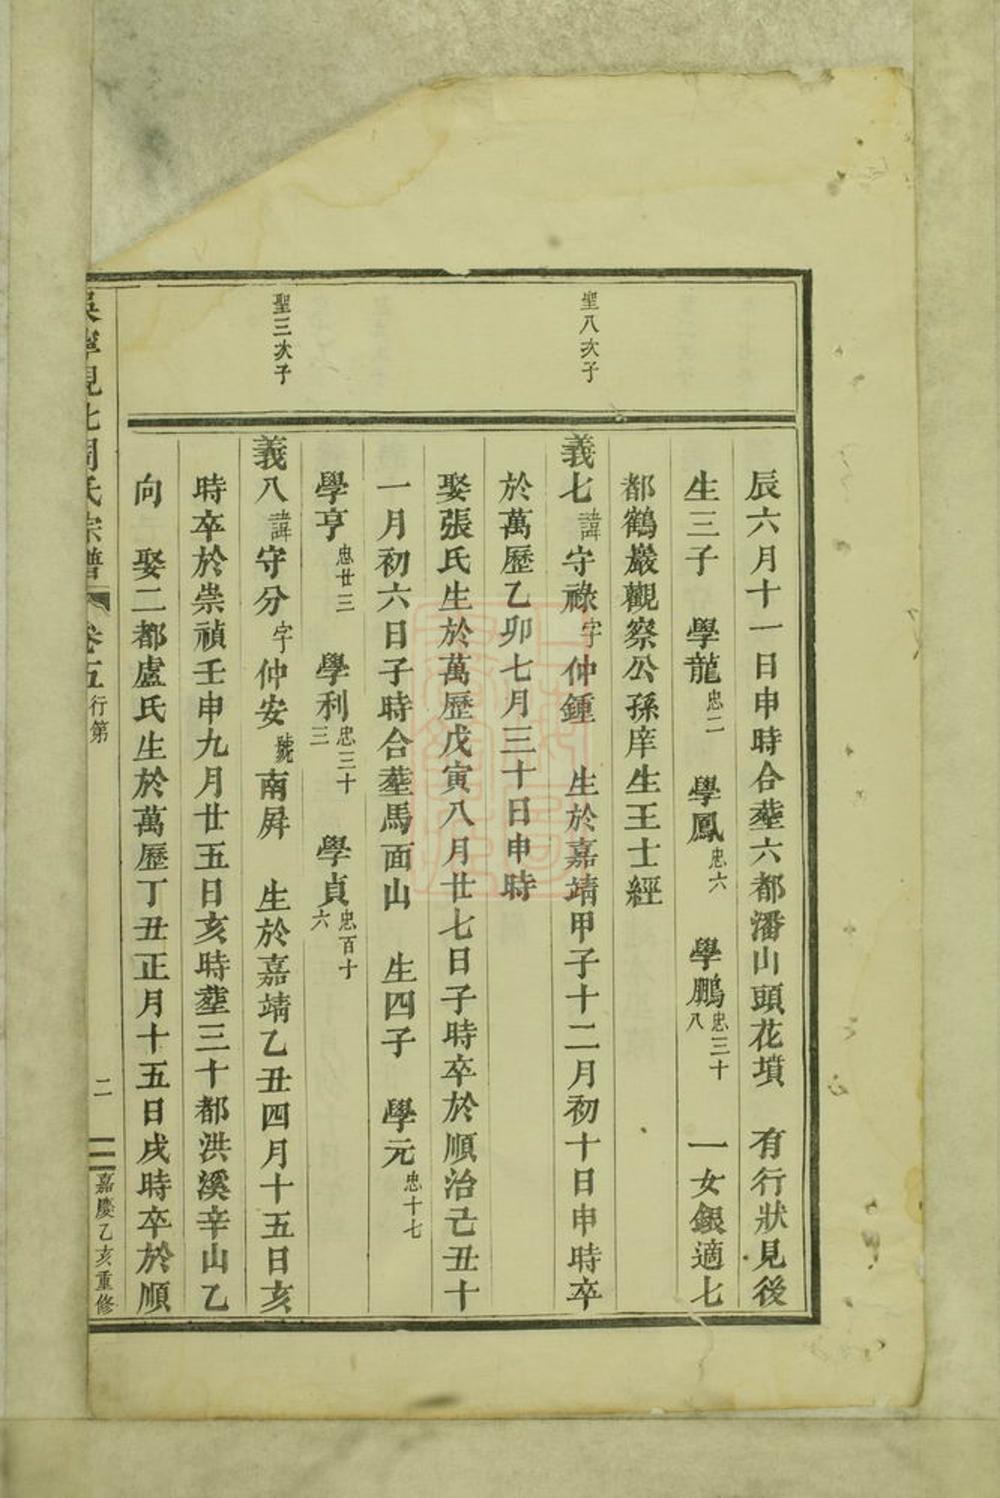 聖八次子
聖三次子
辰六月十一日申時合塟六都潘山頭花墳　有行狀見後
生三子　學龍忠二　學鳳忠六　學鵬忠三十八　一女銀適七
都鶴巖觀察公孫庠生王士經
義七諱守祿字仲鍾　生於嘉靖甲子十二月初十日申時卒
於萬歷乙卯七月三十日申時
娶張氏生於萬歷戊寅八月廿七日子時卒於順治己丑十
一月初六日子時合塟馬面山　生四子　學元忠十七
學亨忠廿三　學利忠三十三　學貞忠百十六
義八諱守分字仲安號南屏　生於嘉靖乙丑四月十五日亥
時卒於崇禎壬申九月廿五日亥時塟三十都洪溪辛山乙
向　娶二都盧氏生於萬歷丁丑正月十五日戌時卒於順
吳寧峴北周氏宗譜　卷五行第　二　嘉慶乙亥重修